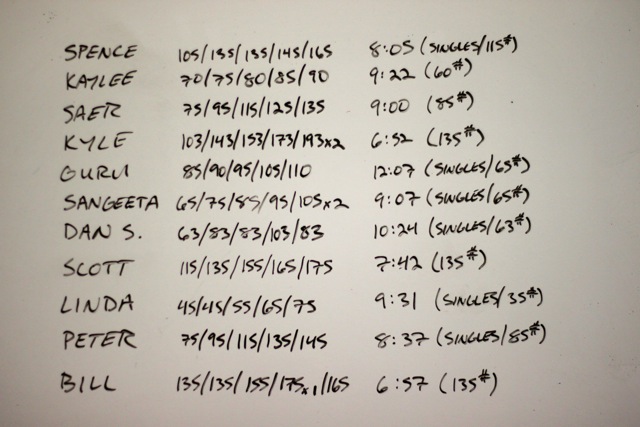 SPENCE 105/135/135/145/165 8:05 (SINGLES/115#)
KAYLEE 70/75/80/85/90 9:22 (60#)
SAER 75/95/115/125/135 9:00 (85#)
KYLE 103/143/153/173/193x2 6:52 (135#)
GURU 85/90/95/105/110 12:07 (SINGLES/65#)
SANGEETA 65/75/85/95/105x2 9:07 (SINGLES/65#)
DAN S. 63/83/83/103/83 10:24 (SINGLES/63#)
SCOTT 115/135/155/165/175 7:42 (135#)
LINDA 45/45/55/65/75 9:31 (SINGLES/35#)
PETER 75/95/115/135/145 8:37 (SINGLES/85#)
BILL 135/135/155/175x1/165 6:57 (135#)